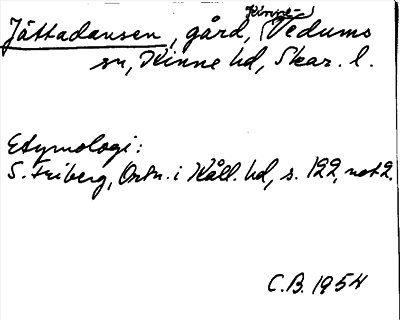 Jättadansen, gård, (Kinne-)Vedums
sn, Kinne hd, Skar. l.
Etymologi:
S. Friberg, Ortn. i Kåll. hd, s. 122, not 2.
C.B. 1954